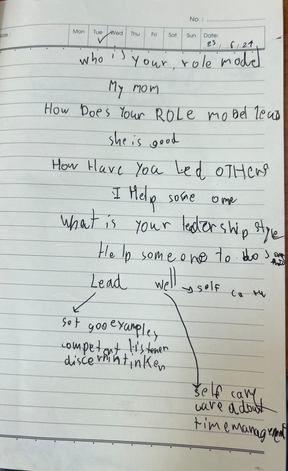 No :
Mon Tue Wed Thu Fri Sat Sun Date:
who is your role model
My mom
How Does Your ROLE model lead
she is good
How Have you Led OTHERS
I Help some one
What is your ledership style
Help someone to do
Lead well → self
set goo examples
competent listener
self care
time management